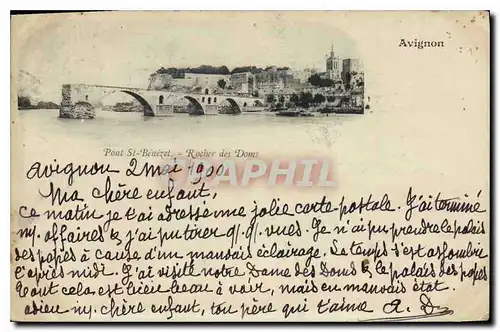 Avignon
Pont St-Bénézet. - Rocher des Doms
DELCAMPHIL
Avignon 2 mai 1900.
Ma chère enfant,
Ce matin je t'ai adressé une jolie carte postale. J'ai terminé
my. affaires & j'ai pu tirer q.q. vues. Je n'ai pu prendre le palais
des papes à cause d'un mauvais éclairage. Le temps s'est assombri
l'après midi. J'ai visité notre Dame des Doms & le palais des papes
tout cela est bien beau à voir, mais en mauvais état.
adieu my. chère enfant, ton père qui t'aime A. D